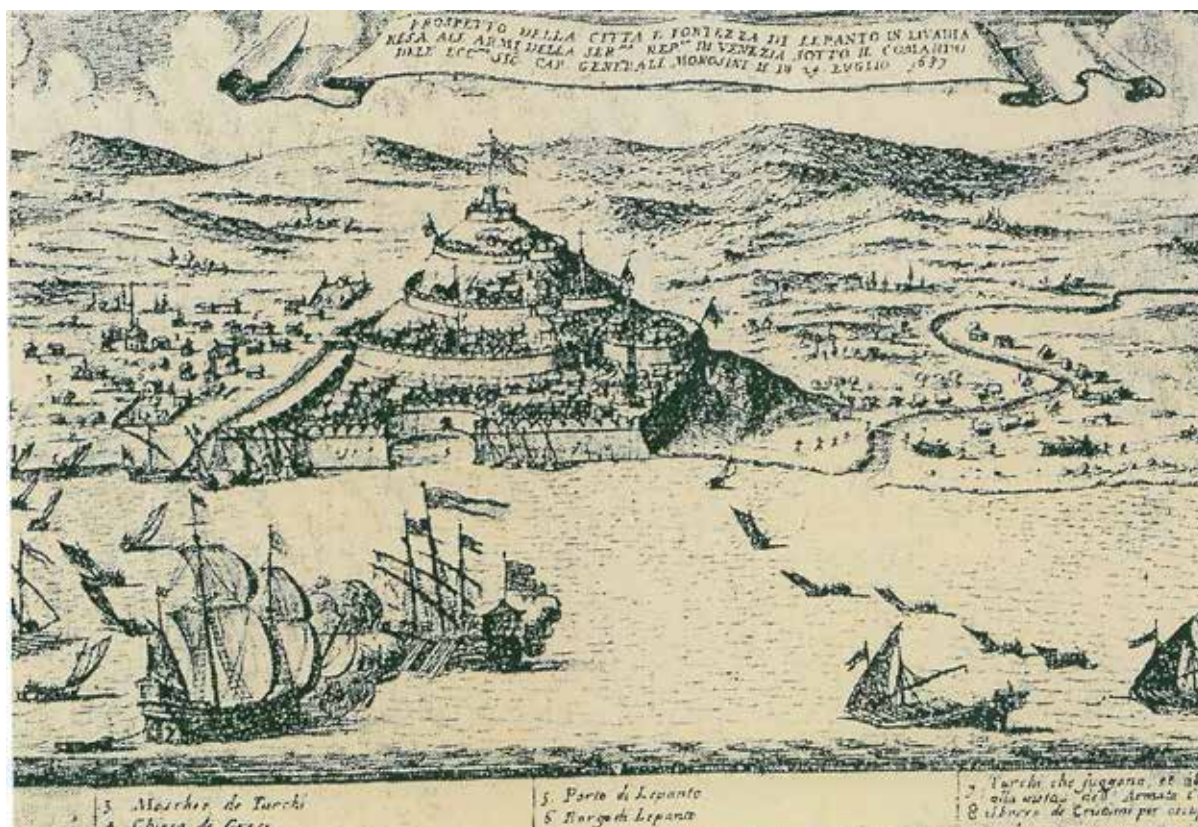 PROSPETTO DELLA CITTA E FORTEZZA DI LEPANTO IN LIVADIA
RESA ALL ARMI DELLA SER.ma REP.ca DI VENEZIA SOTTO IL COMANDO
DELL ECC.mo SIG CAP GENERALE MOROSINI LI 24 LUGLIO 1687
3 Moschee de Turchi
4 Chiesa de Greci
5. Porto di Lepanto
6 Borgo di Lepanto
7 Turchi che fuggono, et
alla vista dell Armata
8 Sbarco de Cristiani per